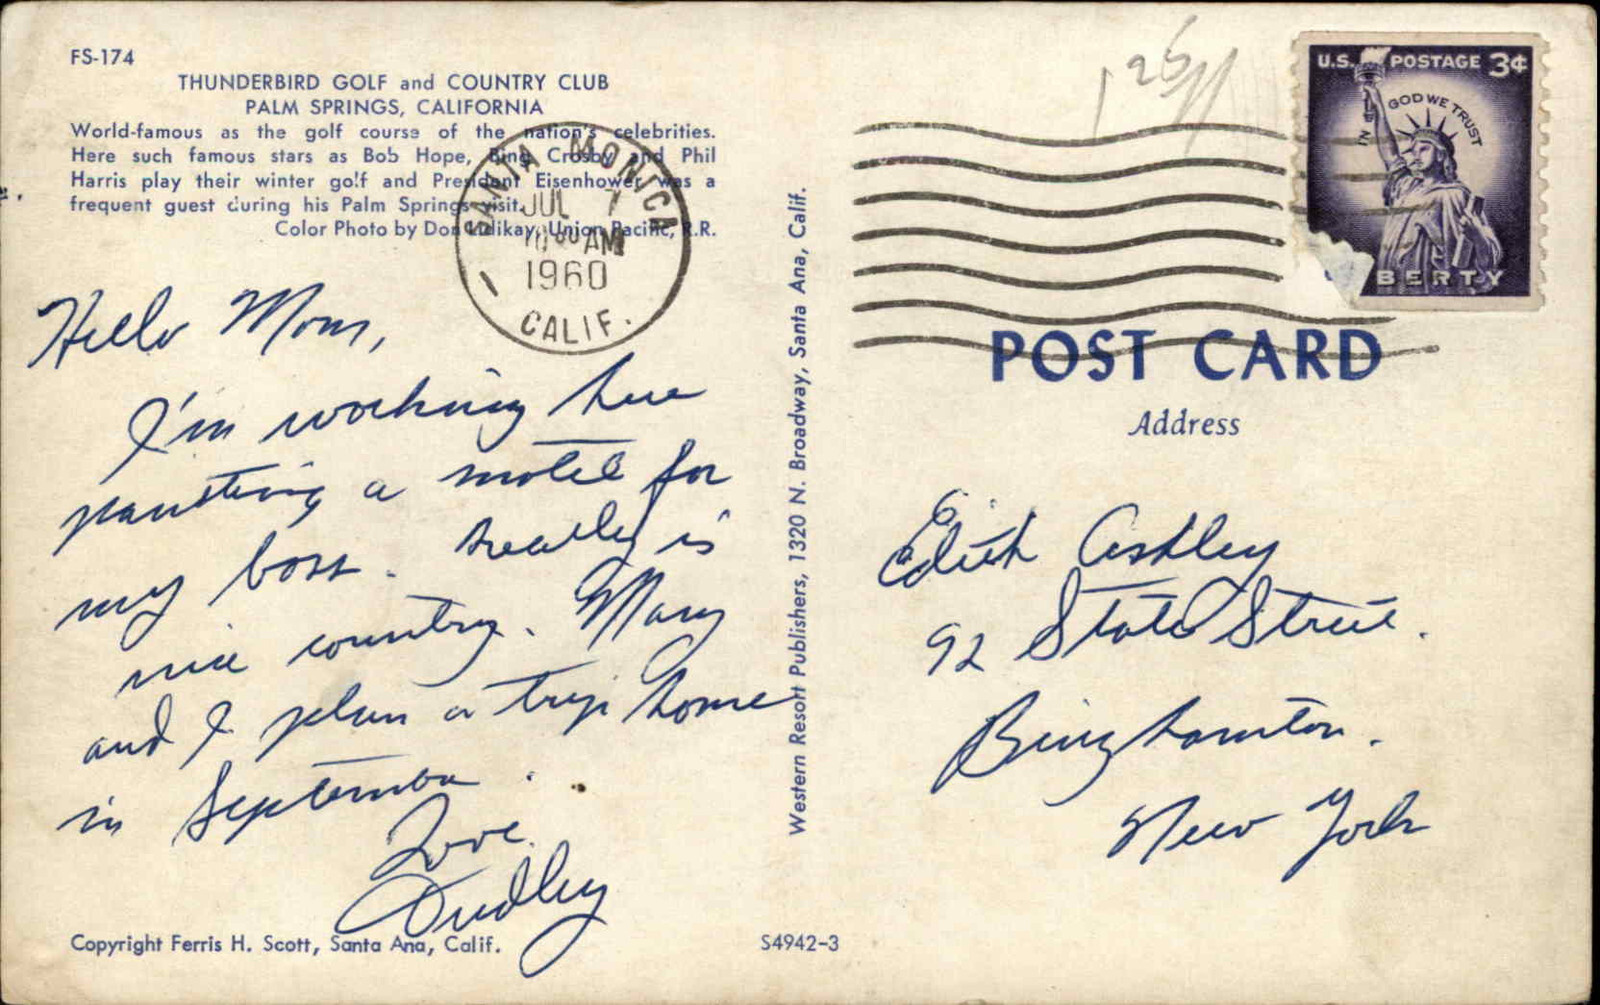 FS-174
THUNDERBIRD GOLF and COUNTRY CLUB
PALM SPRINGS, CALIFORNIA
World-famous as the golf course of the nation's celebrities.
Here such famous stars as Bob Hope, Bing Crosby and Phil
Harris play their winter golf and President Eisenhower was a
frequent guest during his Palm Springs visit.
Color Photo by Don Union Pacific, R.R.
SANTA MONICA
JUL 7
AM
1960
CALIF.
Hello Mom,
I'm working here
painting a motel for
my boss. Really is
nice country. Mary
and I plan a trip home
in September.
Love.
Dudley
Copyright Ferris H. Scott, Santa Ana, Calif.
S4942-3
Western Resort Publishers, 1320 N. Broadway, Santa Ana, Calif.
U.S. POSTAGE 3¢
IN GOD WE TRUST
BERTY
POST CARD
Address
Edith Ashley
92 State Street.
Binghamton.
New York